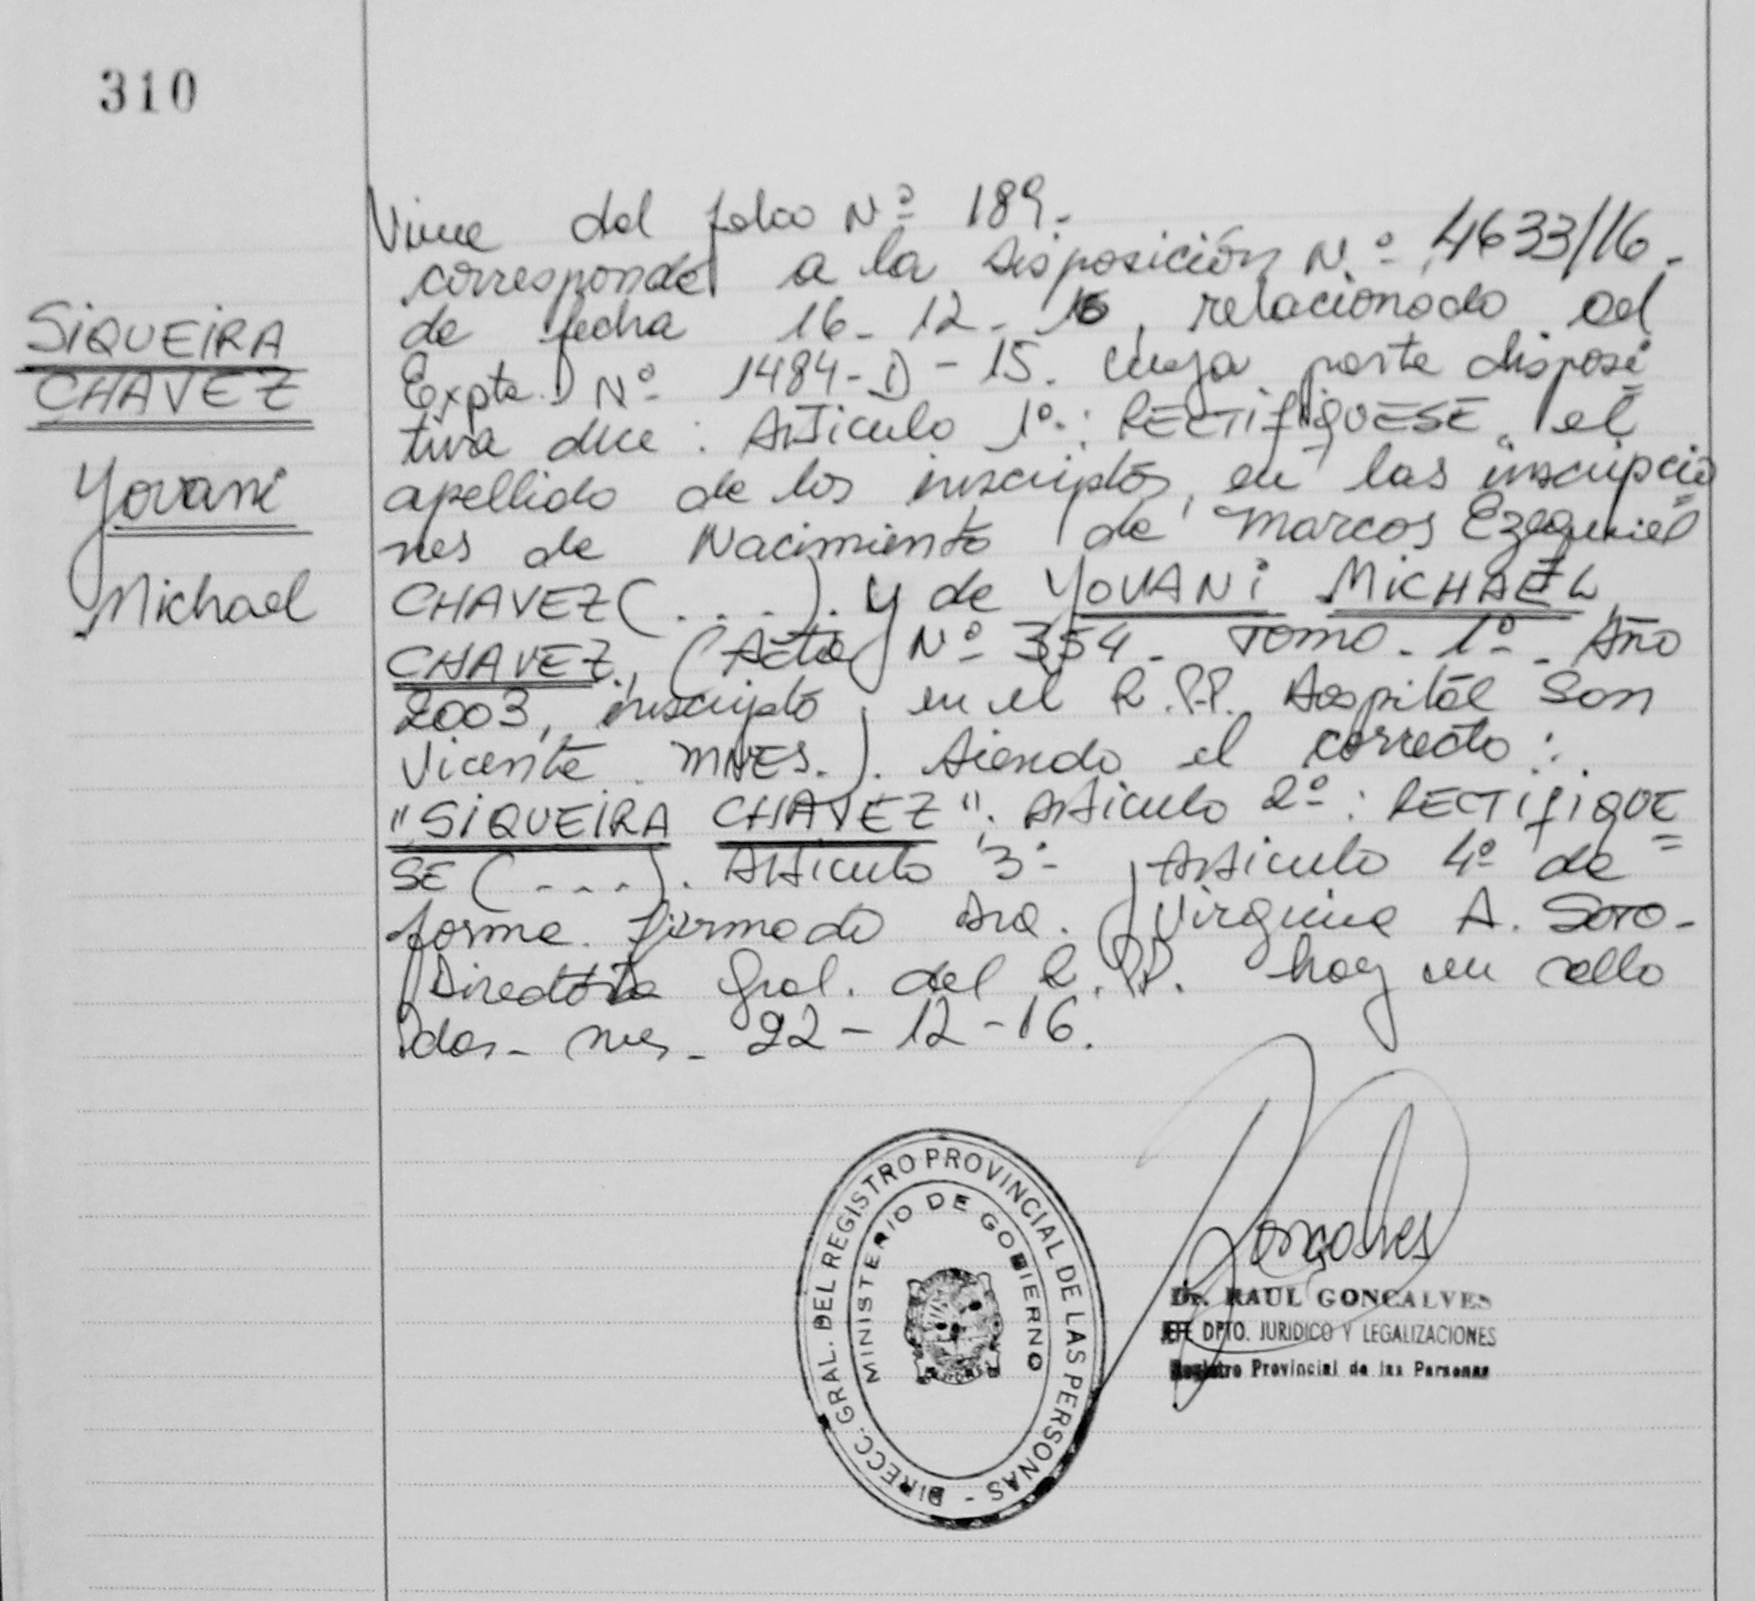 310
SIQUEIRA
CHAVEZ
Yovani
Michael
Viene del folio Nº 189.-
corresponde a la disposición Nº 4633/16.-
de fecha 16-12-16, relacionado al
Expte. Nº 1484-D-15. Cuya parte disposi
tiva dice: Articulo 1º: RECTIFIQUESE el
apellido de los inscriptos, en las inscripcio
nes de Nacimiento de Marcos Ezequiel
CHAVEZ (....). y de YOVANI MICHAEL
CHAVEZ, (Acta Nº 354- Tomo-1º- Año
2003, inscripto, en el R.P.P. Hospital San
Vicente MNES.). Siendo el correcto:
"SIQUEIRA CHAVEZ". Articulo 2º: RECTIFIQUE
SE (....). Articulo 3º Articulo 4º de
forma. Firmado Dra. Virginia A. SOTO-
Directora Gral. del R.P.P. hoy
22-12-16.
DIRECC. GRAL. DEL REGISTRO PROVINCIAL DE LAS PERSONAS -
MINISTERIO DE GOBIERNO
Gonçalves
Dr. RAUL GONCALVES
JEFE DPTO. JURIDICO Y LEGALIZACIONES
Registro Provincial de las Personas